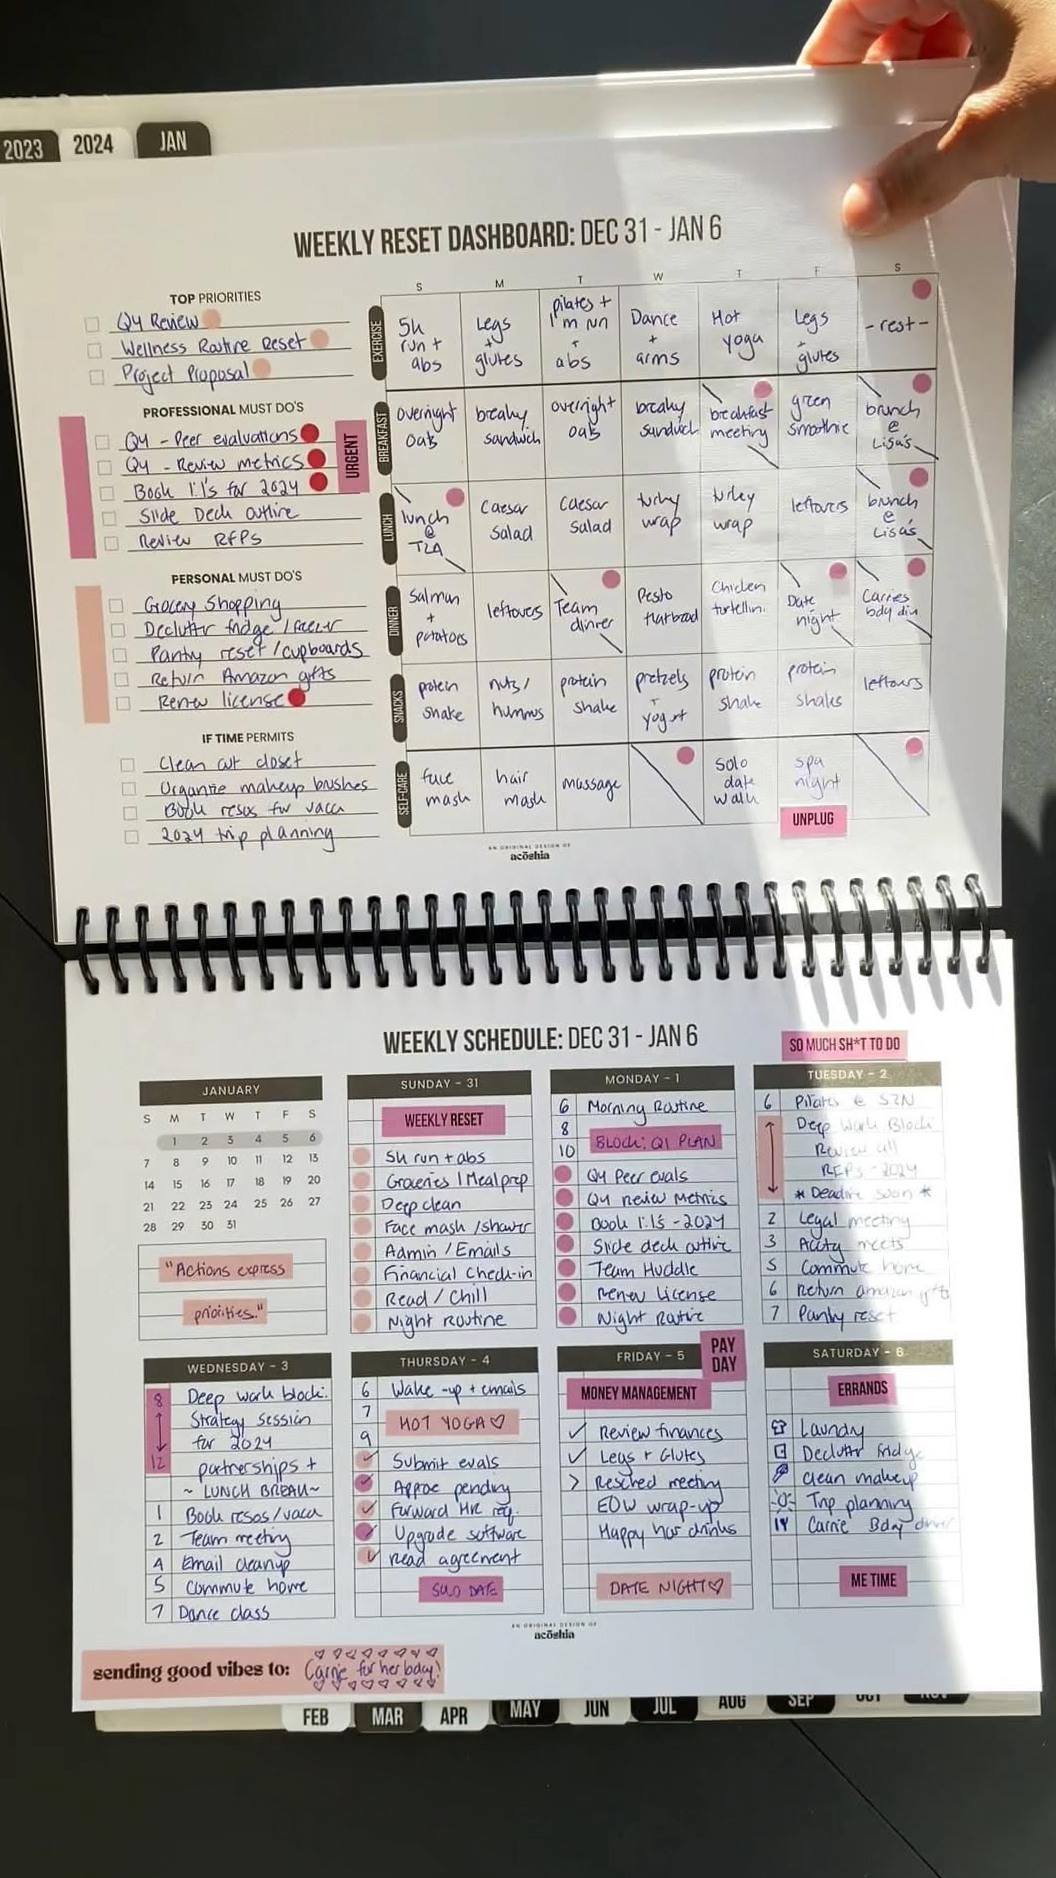 2023
2024
JAN
WEEKLY RESET DASHBOARD: DEC 31 - JAN 6
TOP PRIORITIES
Q4 Review
Wellness Routine Reset
Project Proposal
PROFESSIONAL MUST DO'S
Q4 - Peer evaluations
Q4 - Review metrics
Book 1:1's for 2024
Slide Deck outline
Review RFPs
URGENT
PERSONAL MUST DO'S
Grocery Shopping
Declutter fridge /
Pantry reset / cupboards
Return Amazon gifts
Renew license
IF TIME PERMITS
Clean out closet
Organize makeup brushes
Book resos for vaca
2024 trip planning
S M T W T F S
EXERCISE
5k run + abs
Legs + glutes
pilates + I'm NN + abs
Dance + arms
Hot yoga
Legs + glutes
- rest -
BREAKFAST
overnight oats
breaky sandwich
overnight oats
breaky sandwich
breakfast meeting
green smoothie
brunch @ Lisa's
LUNCH
lunch @
Caesar Salad
Caesar Salad
turkey wrap
turkey wrap
leftovers
brunch @ Lisa's
DINNER
Salmon + potatoes
leftovers
Team dinner
Pesto flatbread
Chicken tortellini
Date night
Carries bday din
SNACKS
protein shake
nuts / hummus
protein shake
pretzels + yogurt
protein shake
protein shake
leftovers
SELF-CARE
face mask
hair mask
massage
solo date walk
spa night
UNPLUG
AN ORIGINAL DESIGN OF
acōshia
WEEKLY SCHEDULE: DEC 31 - JAN 6
SO MUCH SH*T TO DO
JANUARY
S M T W T F S
1 2 3 4 5 6
7 8 9 10 11 12 13
14 15 16 17 18 19 20
21 22 23 24 25 26 27
28 29 30 31
"Actions express
priorities."
SUNDAY - 31
WEEKLY RESET
5k run + abs
Groceries / Meal prep
Deep clean
Face mask / shower
Admin / Emails
Financial Check-in
Read / Chill
Night Routine
MONDAY - 1
6 Morning Routine
8
BLOCK: Q1 PLAN
10
Q4 Peer evals
Q4 review Metrics
Book 1:1's - 2024
Slide deck outline
Team Huddle
Renew License
Night Routine
TUESDAY - 2
6 Pilates @ SZN
Deep Work Block:
Review all
RFPs - 2024
* Deadline soon *
2 Legal meeting
3 meets
5 Commute home
6 Return amazon gifts
7 Pantry reset
WEDNESDAY - 3
8 Deep work block:
Strategy Session
for 2024
12 partnerships +
~ LUNCH BREAK ~
1 Book resos / vaca
2 Team meeting
4 Email cleanup
5 Commute home
7 Dance class
THURSDAY - 4
6 Wake-up + emails
7
HOT YOGA ♡
9
Submit evals
Approve pending
Forward HR req.
Upgrade software
Read agreement
SOLO DATE
FRIDAY - 5
PAY DAY
MONEY MANAGEMENT
✓ Review finances
✓ Legs + Glutes
> Resched meeting
EOW wrap-up
Happy hour drinks
DATE NIGHT ♡
SATURDAY - 6
ERRANDS
Laundry
Declutter fridge
Clean makeup
Trip planning
Carrie Bday dinner
ME TIME
AN ORIGINAL DESIGN OF
acōshia
sending good vibes to: Carrie for her bday!
FEB
MAR
APR
MAY
JUN
JUL
AUG
SEP
OCT
NOV